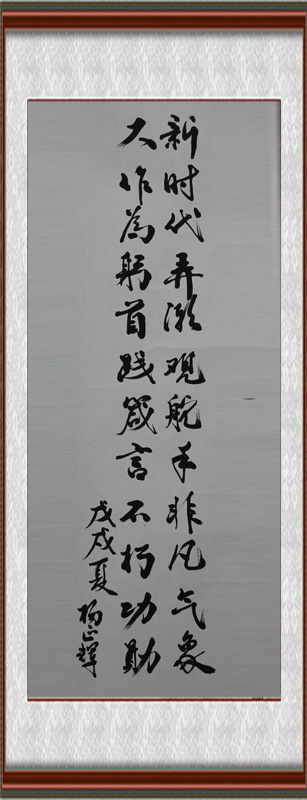 新时代弄潮观舵手非凡气象
大作为躬首践箴言不朽功勋
戊戌夏 杨正辉